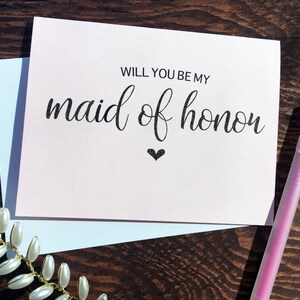 WILL YOU BE MY
maid of honor